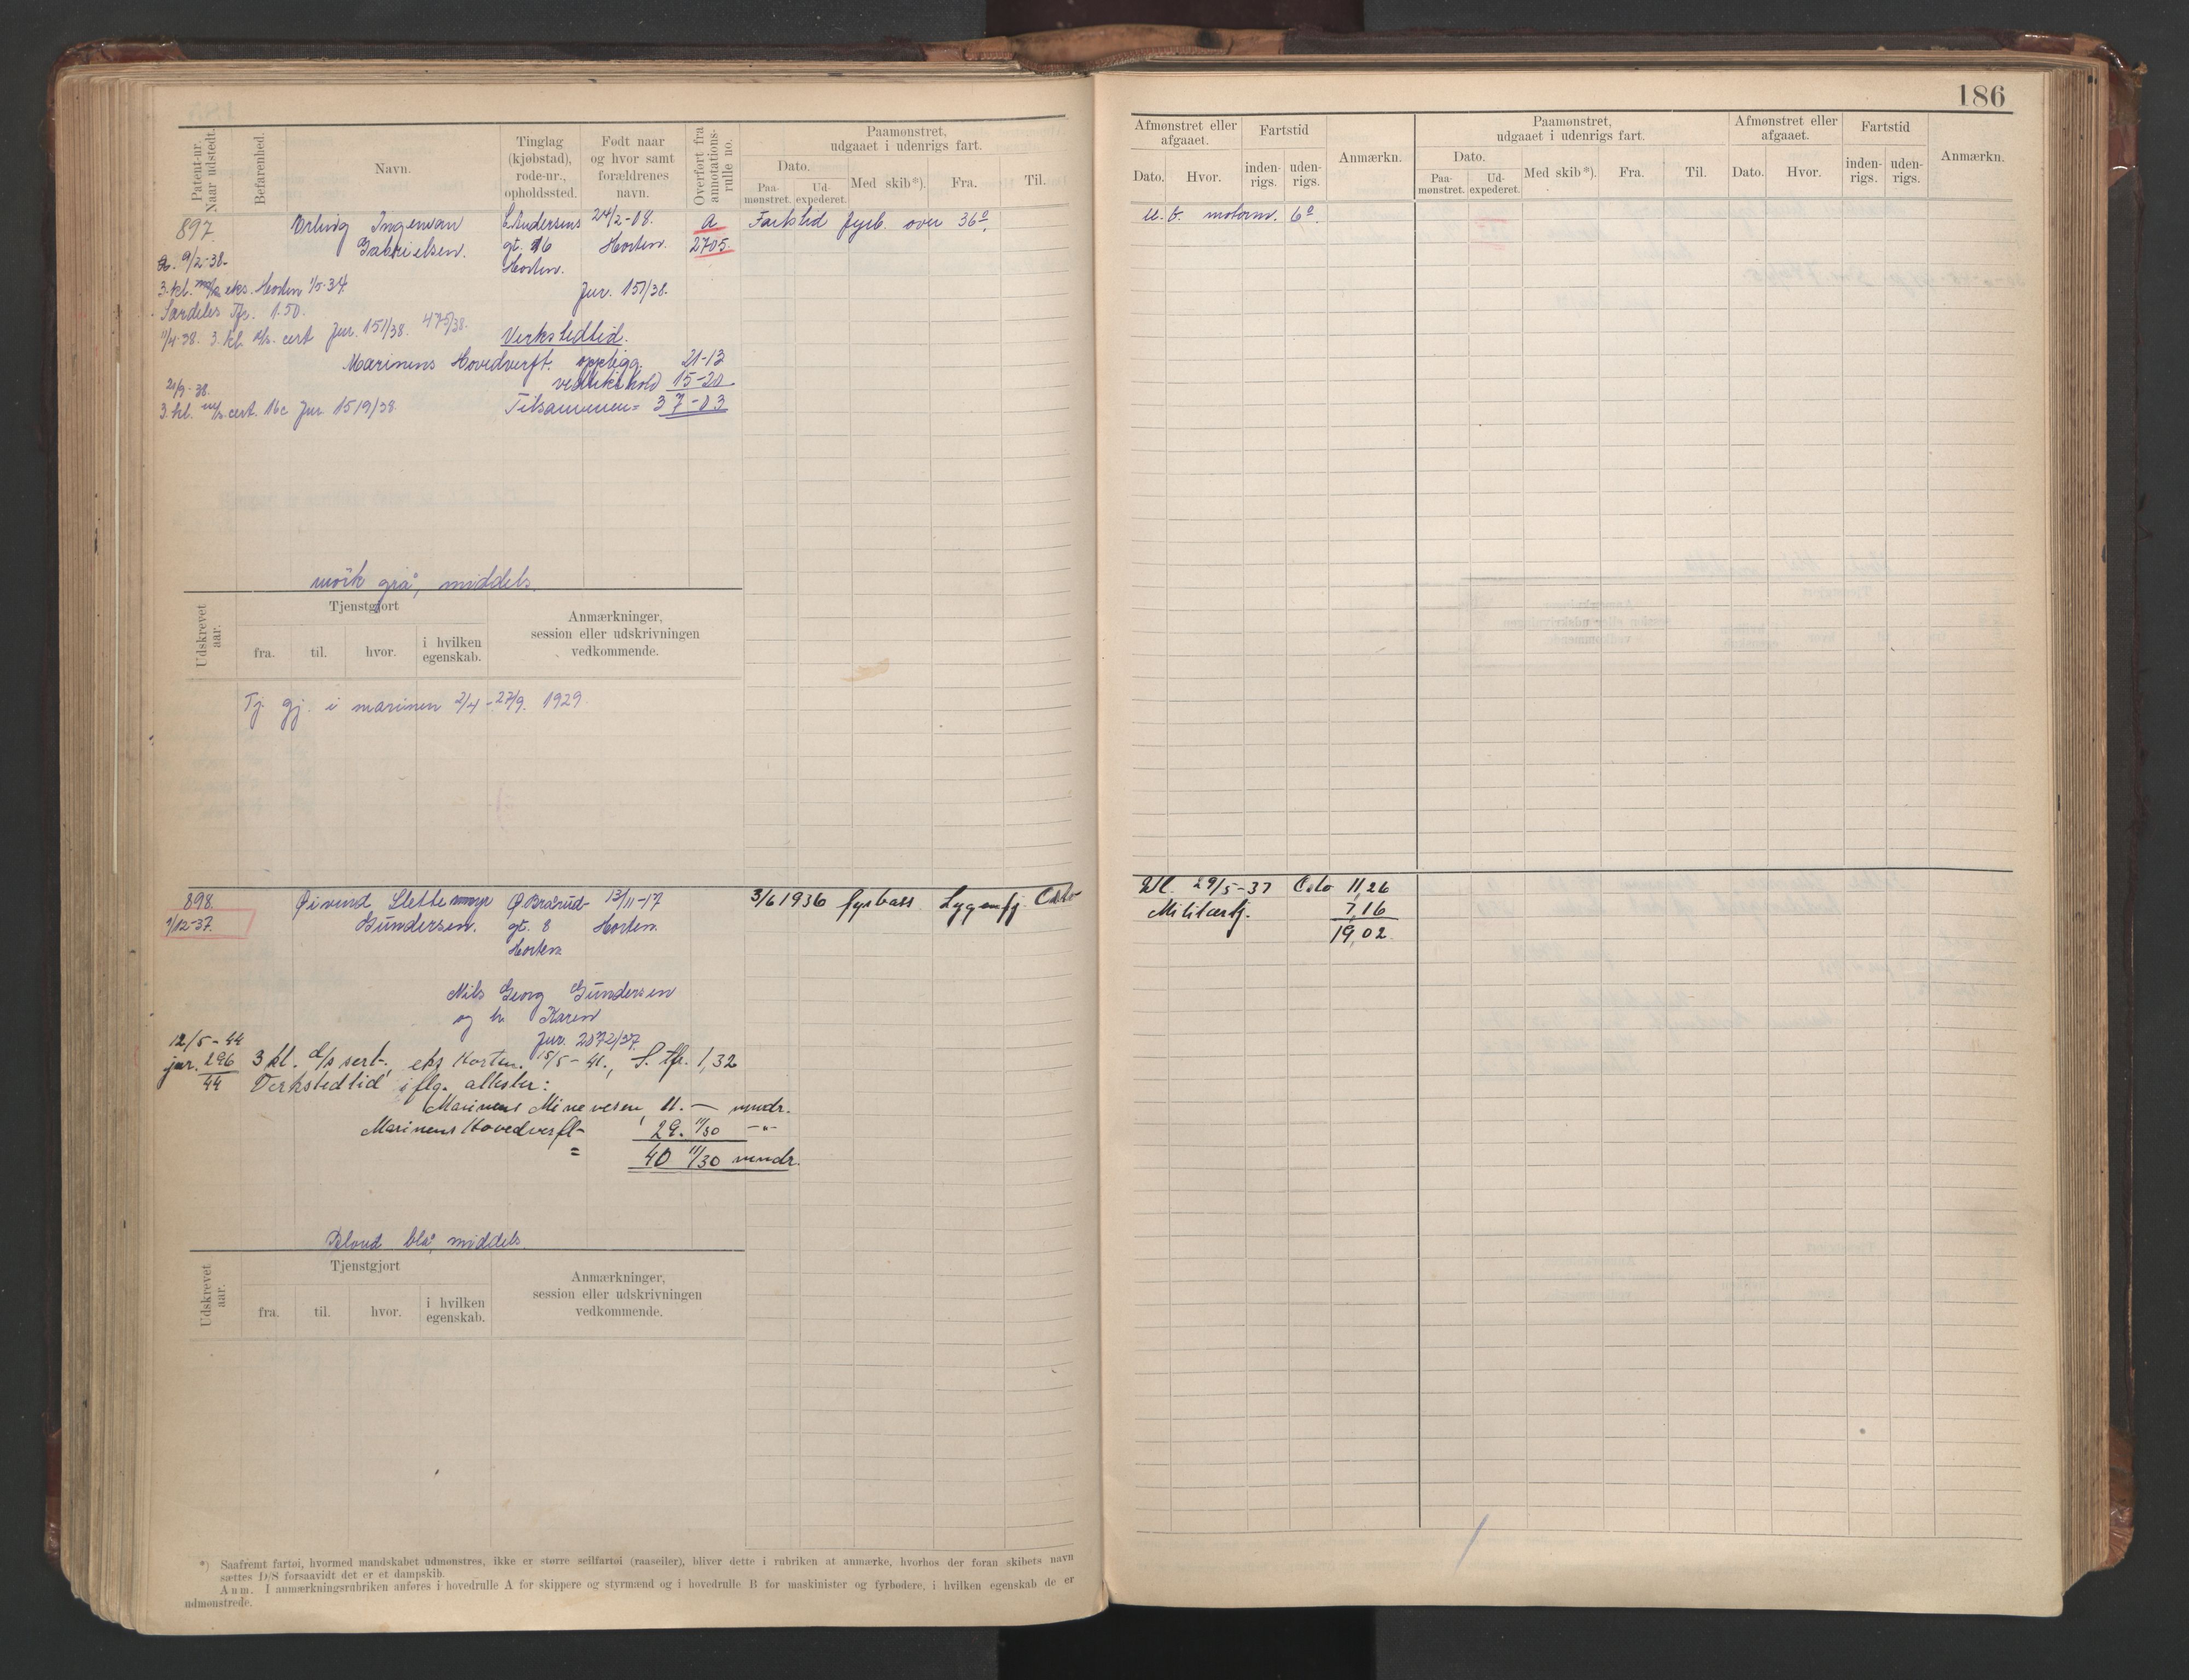 186
Patent-nr. Naar udstedt.
Befarenhed.
Navn.
Tinglag (kjøbstad), rode-nr., opholdssted.
Født naar og hvor samt forældrenes navn.
Overført fra annotations-rulle no.
Paamønstret, udgaaet i udenrigs fart.
Dato.
Paa-mønstret.
Ud-expederet.
Med skib*).
Fra.
Til.
Afmønstret eller afgaaet.
Dato.
Hvor.
Fartstid
inden-rigs.
uden-rigs.
Anmærkn.
Paamønstret, udgaaet i udenrigs fart.
Dato.
Paa-mønstret.
Ud-expederet.
Med skib*).
Fra.
Til.
Afmønstret eller afgaaet.
Dato.
Hvor.
Fartstid
inden-rigs.
uden-rigs.
Anmærkn.
897.
9/2-38.
Ingeman
Gabrielsen.
gt. 16
Horten.
24/2-08.
Horten.
A
2705.
Fartstid fyrb. over 36
motorm. 6
3. kl. eks. Horten 1/5-34.
Jur. 151/38.
Særdeles Tfr. 1.50.
11/4-38. 3. kl. cert Jur. 151/38. 475/38.
Verkstedtid.
Marinens Hovedverft. opplegg. 21-13
vedlikehold 15-20
21/9-38.
3. kl. m/s. cert. 16c Jur. 1519/38.
Tilsammen = 37-03
mørk grå, middels.
Udskrevet aar.
Tjenstgjort
fra.
til.
hvor.
i hvilken egenskab.
Anmærkninger, session eller udskrivningen vedkommende.
Tj. gj. i marinen 2/4-27/9. 1929.
898.
1/12-37.
Øivind Slettemmyr
Gundersen.
Ø Brårud-
gt. 8
Horten
13/11-17
Horten
3/6 1936 fyrbass Lygenfj. Oslo
29/5-37 Oslo 11,26
Militærtj. 7,16
19,02
Nils Georg Gundersen
og h. Karen
Jur. 2072/37.
12/5-44
jur. 296/44
3 kl. d/s sert., eks Horten 15/5-41., S. Tfr. 1,32
Verkstedtid iflg. attester:
Marinens Minevesen, 11. — mndr.
Marinens Hovedverft 29. 11/30 -"-
= 40 11/30 mndr.
Blond blå, middels.
Udskrevet aar.
Tjenstgjort
fra.
til.
hvor.
i hvilken egenskab.
Anmærkninger, session eller udskrivningen vedkommende.
*) Saafremt fartøi, hvormed mandskabet udmønstres, ikke er større seilfartøi (raaseiler), bliver dette i rubriken at anmærke, hvorhos der foran skibets navn
sættes D/S forsaavidt det er et dampskib.
Anm. I anmærkningsrubriken anføres i hovedrulle A for skippere og styrmænd og i hovedrulle B for maskinister og fyrbødere, i hvilken egenskab de er
udmønstrede.